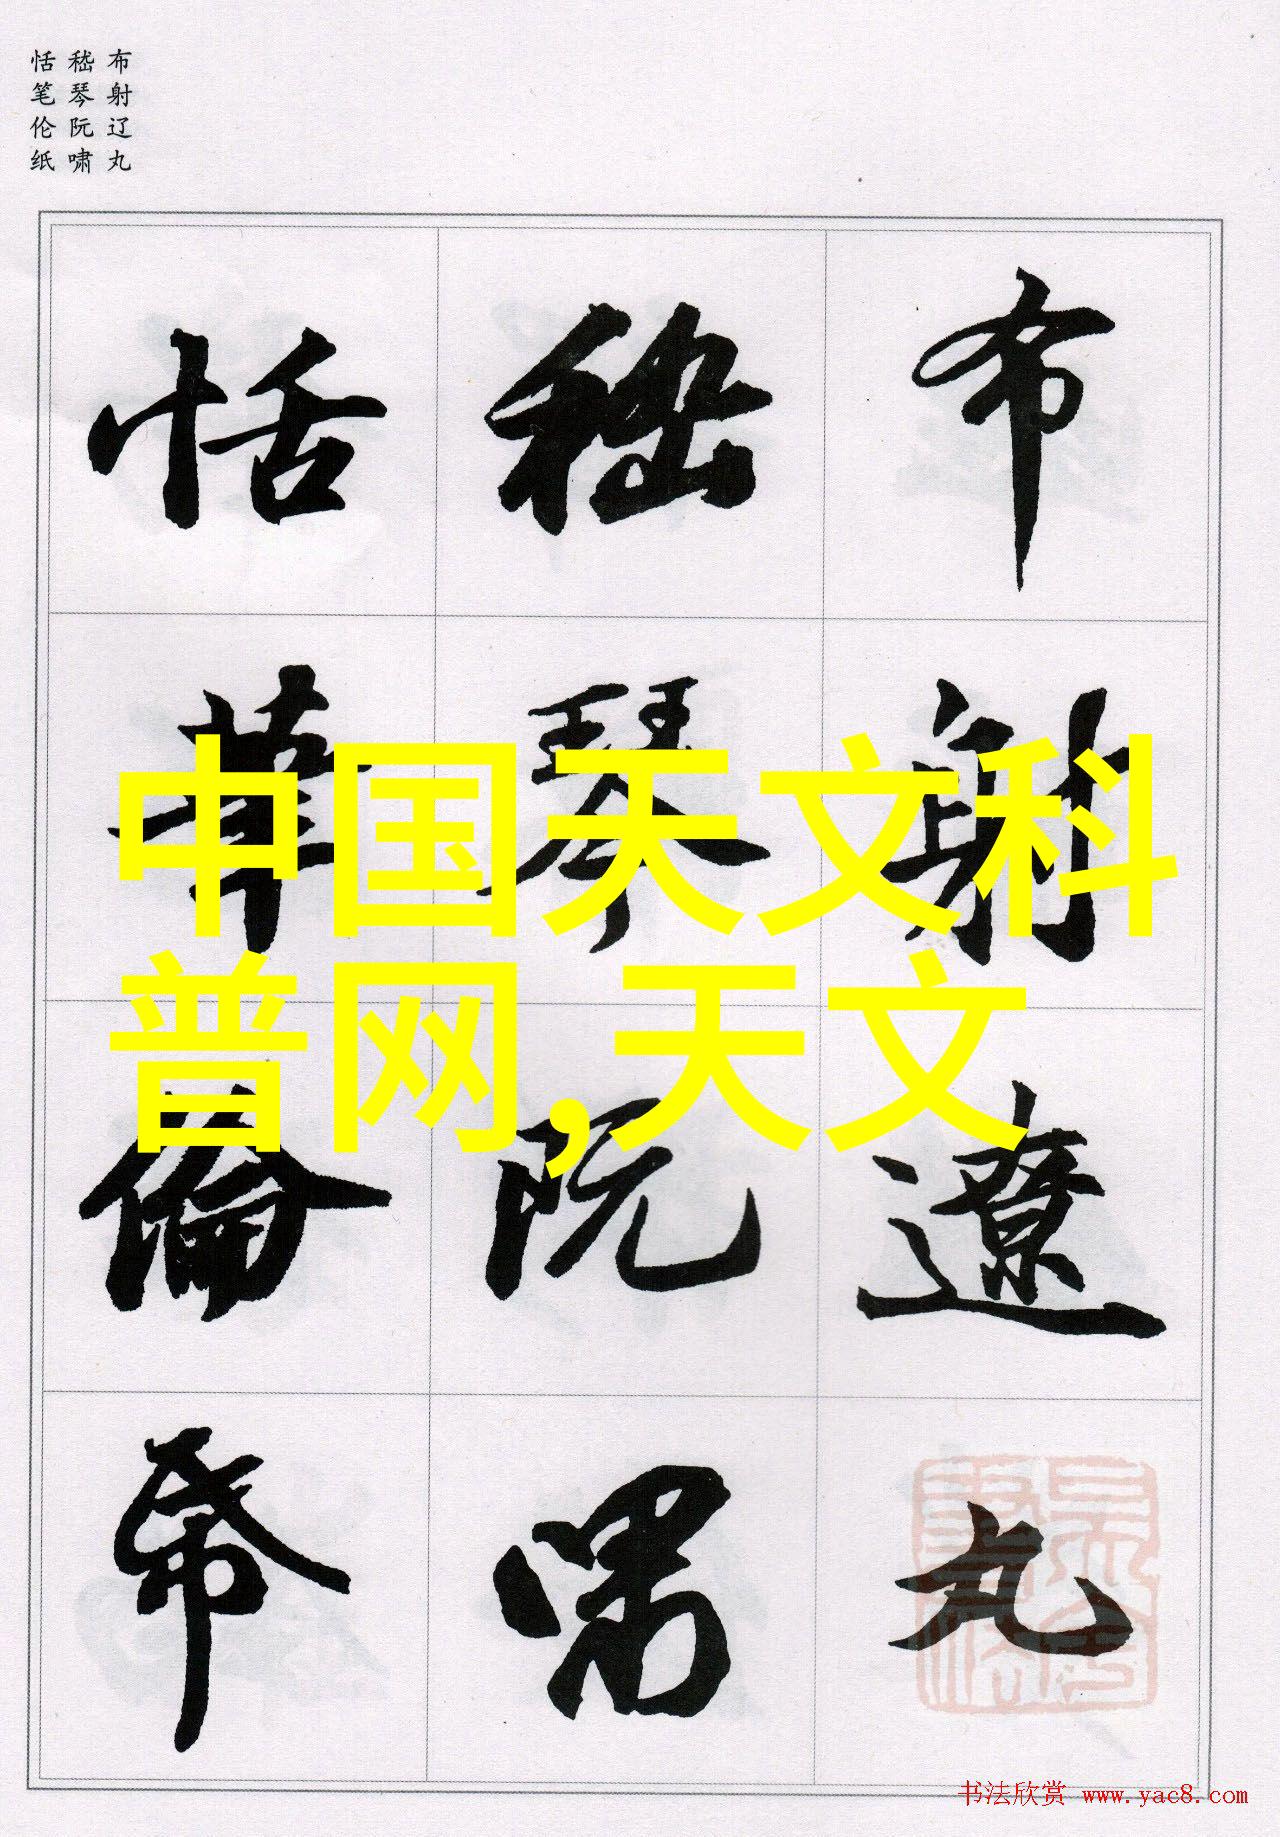 布射辽丸
嵇琴阮啸
恬笔伦纸
布射遼丸
嵇琴阮嘯
恬筆倫帋
中国天文科
普网,天文
书法欣赏 www.yac8.com